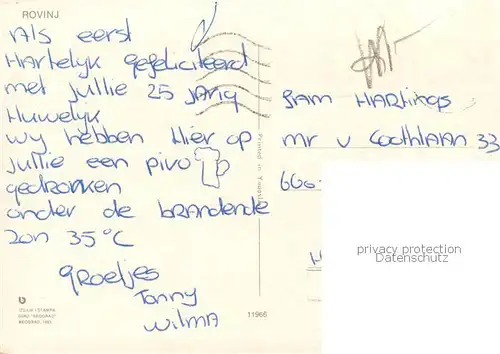 ROVINJ
Als eerst
Hartelyk gefeliciteerd
met jullie 25 JARig
Huwelyk
wy hebben Hier op
jullie een pivo
gedronken
onder de brandende
zon 35°C
groetjes
Tonny
Wilma
fam HARtings
mr v 33
privacy protection
Datenschutz
Printed in
IZDAJE I STAMPA
BEOGRAD
11966